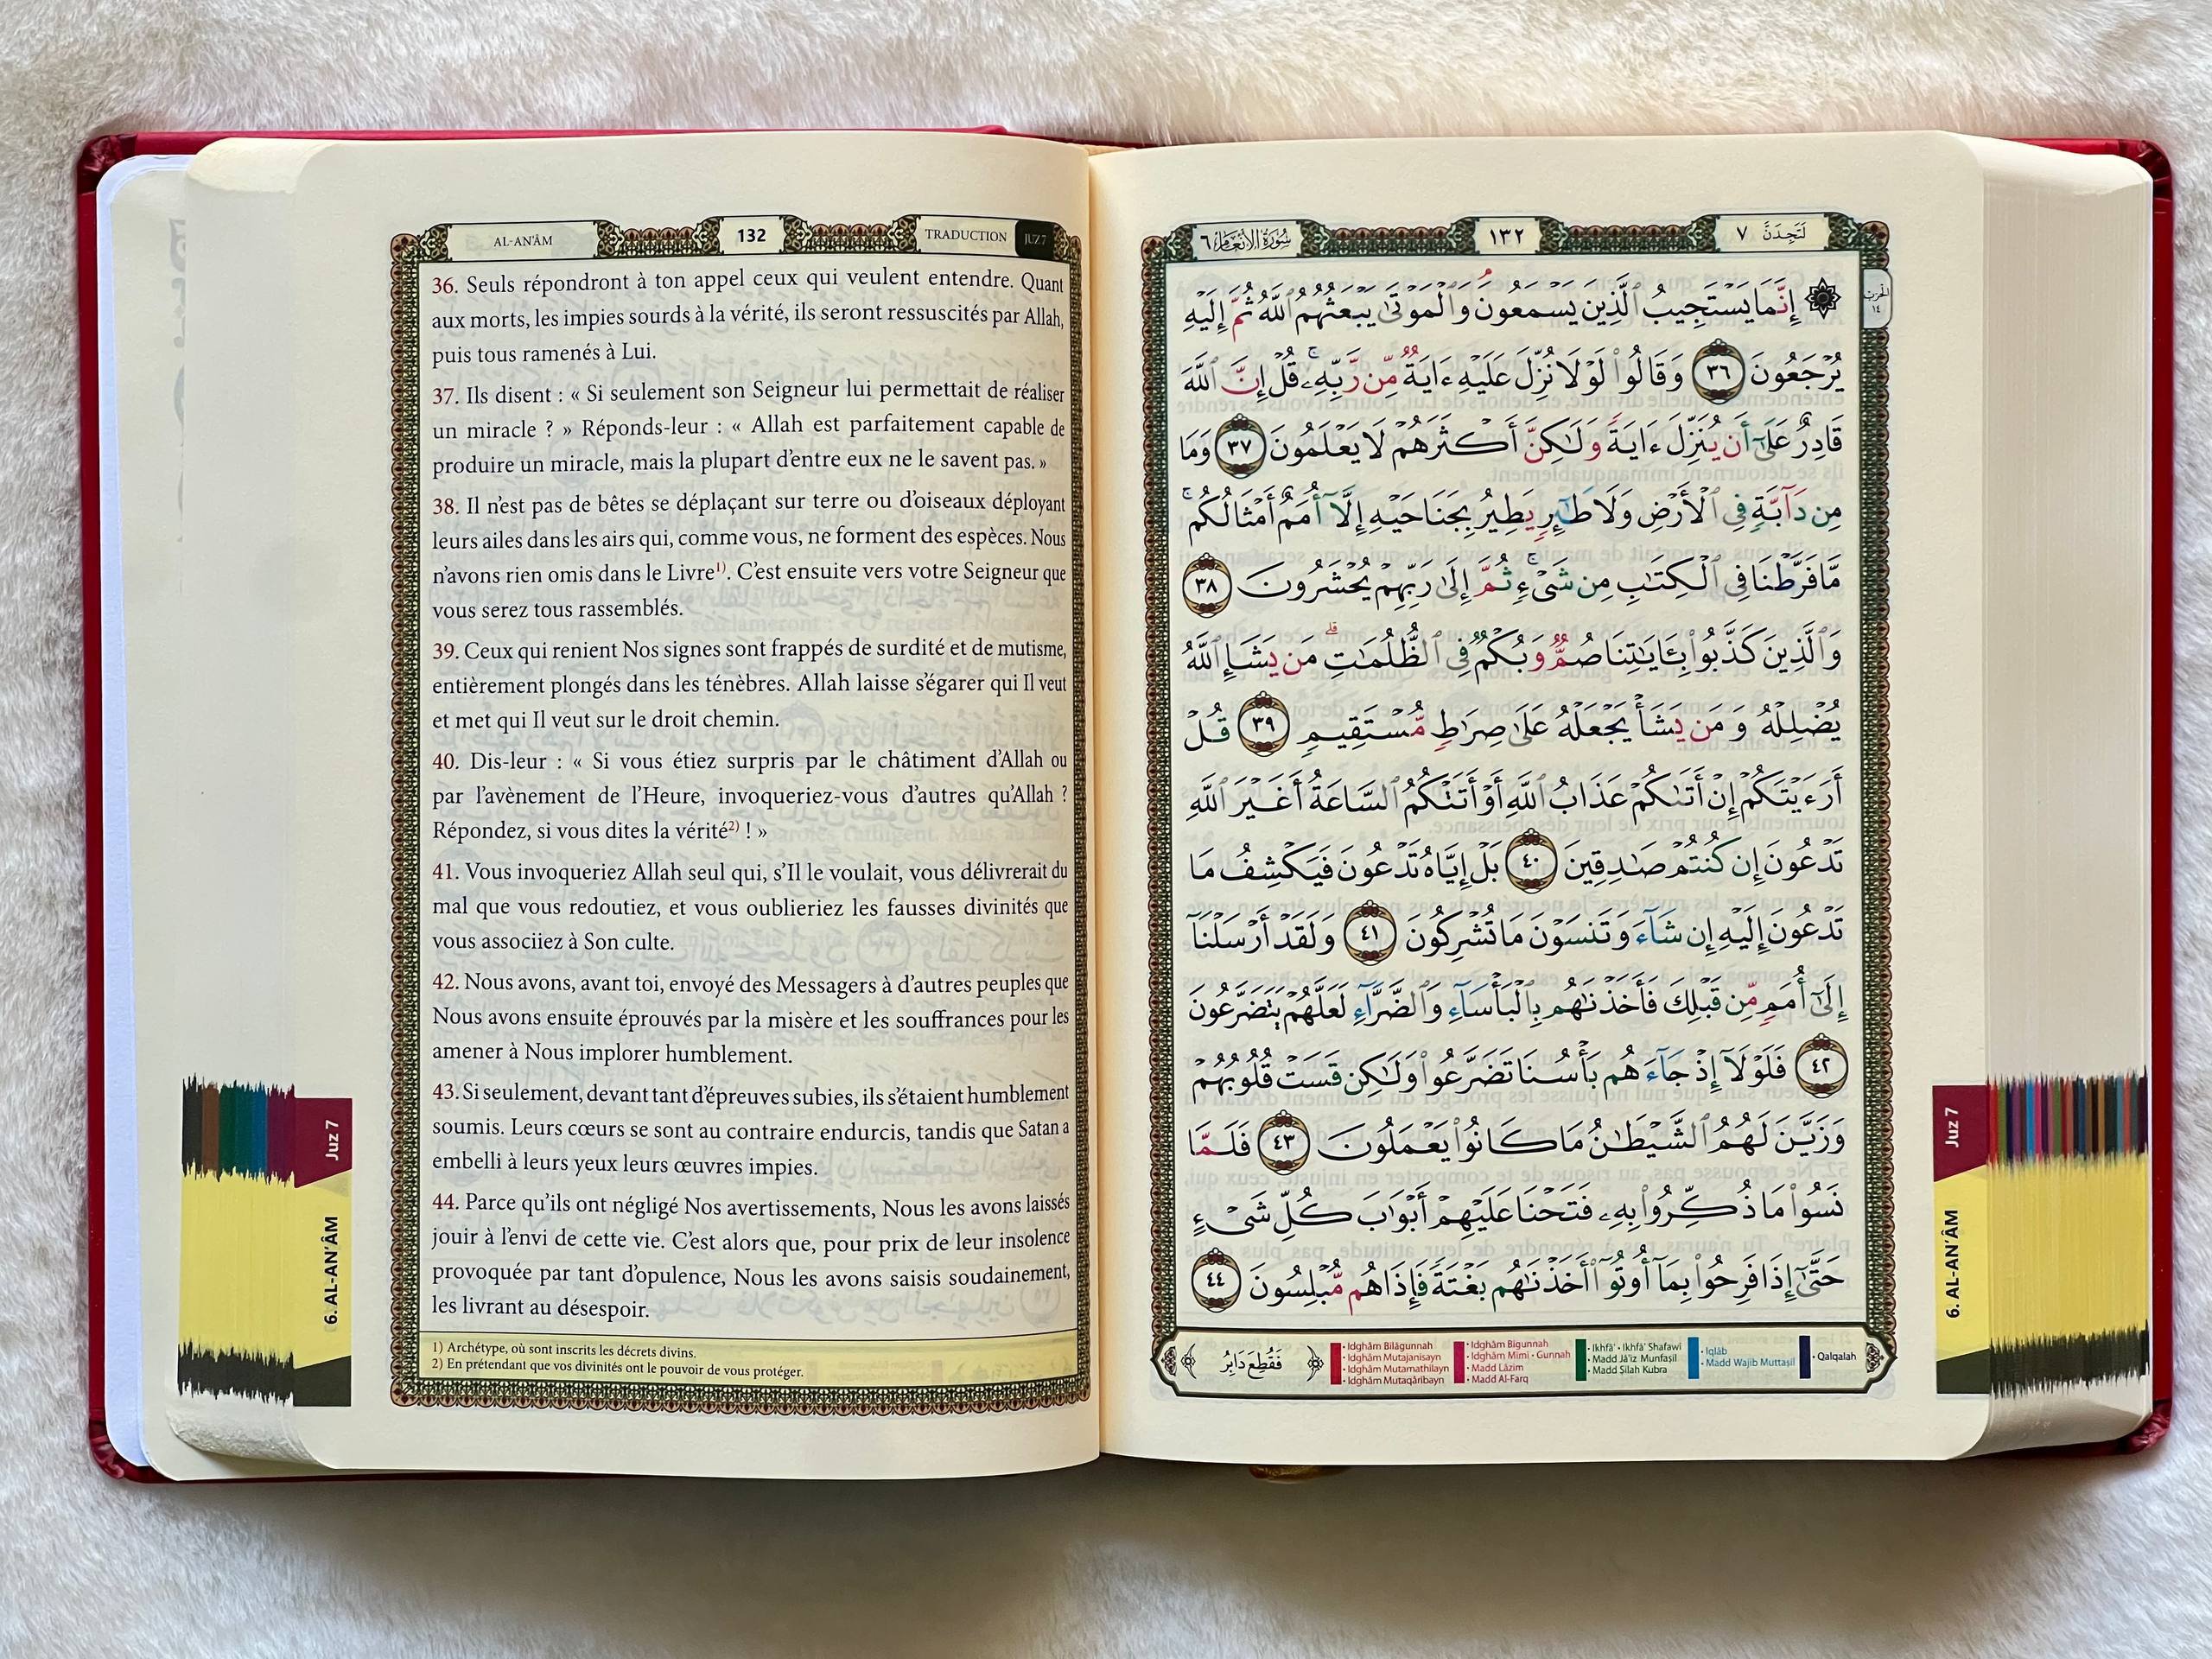 AL-AN'ÂM
132
TRADUCTION
JUZ 7
36. Seuls répondront à ton appel ceux qui veulent entendre. Quant
aux morts, les impies sourds à la vérité, ils seront ressuscités par Allah,
puis tous ramenés à Lui.
37. Ils disent : « Si seulement son Seigneur lui permettait de réaliser
un miracle ? » Réponds-leur : « Allah est parfaitement capable de
produire un miracle, mais la plupart d'entre eux ne le savent pas. »
38. Il n'est pas de bêtes se déplaçant sur terre ou d'oiseaux déployant
leurs ailes dans les airs qui, comme vous, ne forment des espèces. Nous
n'avons rien omis dans le Livre1). C'est ensuite vers votre Seigneur que
vous serez tous rassemblés.
39. Ceux qui renient Nos signes sont frappés de surdité et de mutisme,
entièrement plongés dans les ténèbres. Allah laisse s'égarer qui Il veut
et met qui Il veut sur le droit chemin.
40. Dis-leur : « Si vous étiez surpris par le châtiment d'Allah ou
par l'avènement de l'Heure, invoqueriez-vous d'autres qu'Allah ?
Répondez, si vous dites la vérité2) ! »
41. Vous invoqueriez Allah seul qui, s'Il le voulait, vous délivrerait du
mal que vous redoutiez, et vous oublieriez les fausses divinités que
vous associiez à Son culte.
42. Nous avons, avant toi, envoyé des Messagers à d'autres peuples que
Nous avons ensuite éprouvés par la misère et les souffrances pour les
amener à Nous implorer humblement.
43. Si seulement, devant tant d'épreuves subies, ils s'étaient humblement
soumis. Leurs cœurs se sont au contraire endurcis, tandis que Satan a
embelli à leurs yeux leurs œuvres impies.
44. Parce qu'ils ont négligé Nos avertissements, Nous les avons laissés
jouir à l'envi de cette vie. C'est alors que, pour prix de leur insolence
provoquée par tant d'opulence, Nous les avons saisis soudainement,
les livrant au désespoir.
1) Archétype, où sont inscrits les décrets divins.
2) En prétendant que vos divinités ont le pouvoir de vous protéger.
Juz 7
6. AL-AN'ÂM
لَتَجِدَنَّ ٧
١٣٢
سُورَةُ الأَنْعَام ٦
الحزب
١٤
۞ إِنَّمَا يَسْتَجِيبُ ٱلَّذِينَ يَسْمَعُونَۘ وَٱلْمَوْتَىٰ يَبْعَثُهُمُ ٱللَّهُ ثُمَّ إِلَيْهِ
يُرْجَعُونَ ٣٦ وَقَالُوا۟ لَوْلَا نُزِّلَ عَلَيْهِ ءَايَةٌ مِّن رَّبِّهِۦۚ قُلْ إِنَّ ٱللَّهَ
قَادِرٌ عَلَىٰٓ أَن يُنَزِّلَ ءَايَةً وَلَٰكِنَّ أَكْثَرَهُمْ لَا يَعْلَمُونَ ٣٧ وَمَا
مِن دَآبَّةٍ فِى ٱلْأَرْضِ وَلَا طَٰٓئِرٍ يَطِيرُ بِجَنَاحَيْهِ إِلَّآ أُمَمٌ أَمْثَالُكُمۚ
مَّا فَرَّطْنَا فِى ٱلْكِتَٰبِ مِن شَىْءٍۚ ثُمَّ إِلَىٰ رَبِّهِمْ يُحْشَرُونَ ٣٨
وَٱلَّذِينَ كَذَّبُوا۟ بِـَٔايَٰتِنَا صُمٌّ وَبُكْمٌ فِى ٱلظُّلُمَٰتِۗ مَن يَشَإِ ٱللَّهُ
يُضْلِلْهُ وَمَن يَشَأْ يَجْعَلْهُ عَلَىٰ صِرَٰطٍ مُّسْتَقِيمٍ ٣٩ قُلْ
أَرَءَيْتَكُمْ إِنْ أَتَىٰكُمْ عَذَابُ ٱللَّهِ أَوْ أَتَتْكُمُ ٱلسَّاعَةُ أَغَيْرَ ٱللَّهِ
تَدْعُونَ إِن كُنتُمْ صَٰدِقِينَ ٤٠ بَلْ إِيَّاهُ تَدْعُونَ فَيَكْشِفُ مَا
تَدْعُونَ إِلَيْهِ إِن شَآءَ وَتَنسَوْنَ مَا تُشْرِكُونَ ٤١ وَلَقَدْ أَرْسَلْنَآ
إِلَىٰٓ أُمَمٍ مِّن قَبْلِكَ فَأَخَذْنَٰهُم بِٱلْبَأْسَآءِ وَٱلضَّرَّآءِ لَعَلَّهُمْ يَتَضَرَّعُونَ
٤٢ فَلَوْلَآ إِذْ جَآءَهُم بَأْسُنَا تَضَرَّعُوا۟ وَلَٰكِن قَسَتْ قُلُوبُهُمْ
وَزَيَّنَ لَهُمُ ٱلشَّيْطَٰنُ مَا كَانُوا۟ يَعْمَلُونَ ٤٣ فَلَمَّا
نَسُوا۟ مَا ذُكِّرُوا۟ بِهِۦ فَتَحْنَا عَلَيْهِمْ أَبْوَٰبَ كُلِّ شَىْءٍ
حَتَّىٰٓ إِذَا فَرِحُوا۟ بِمَآ أُوتُوٓا۟ أَخَذْنَٰهُم بَغْتَةً فَإِذَا هُم مُّبْلِسُونَ ٤٤
فَقُطِعَ دَابِرُ
• Idghâm Bilâgunnah
• Idghâm Mutajanisayn
• Idghâm Mutamathilayn
• Idghâm Mutaqâribayn
• Idghâm Bigunnah
• Idghâm Mimi • Gunnah
• Madd Lâzim
• Madd Al-Farq
• Ikhfâ' • Ikhfâ' Shafawi
• Madd Jâ'iz Munfaṣil
• Madd Ṣilah Kubra
• Iqlâb
• Madd Wajib Muttaṣil
• Qalqalah
Juz 7
6. AL-AN'ÂM